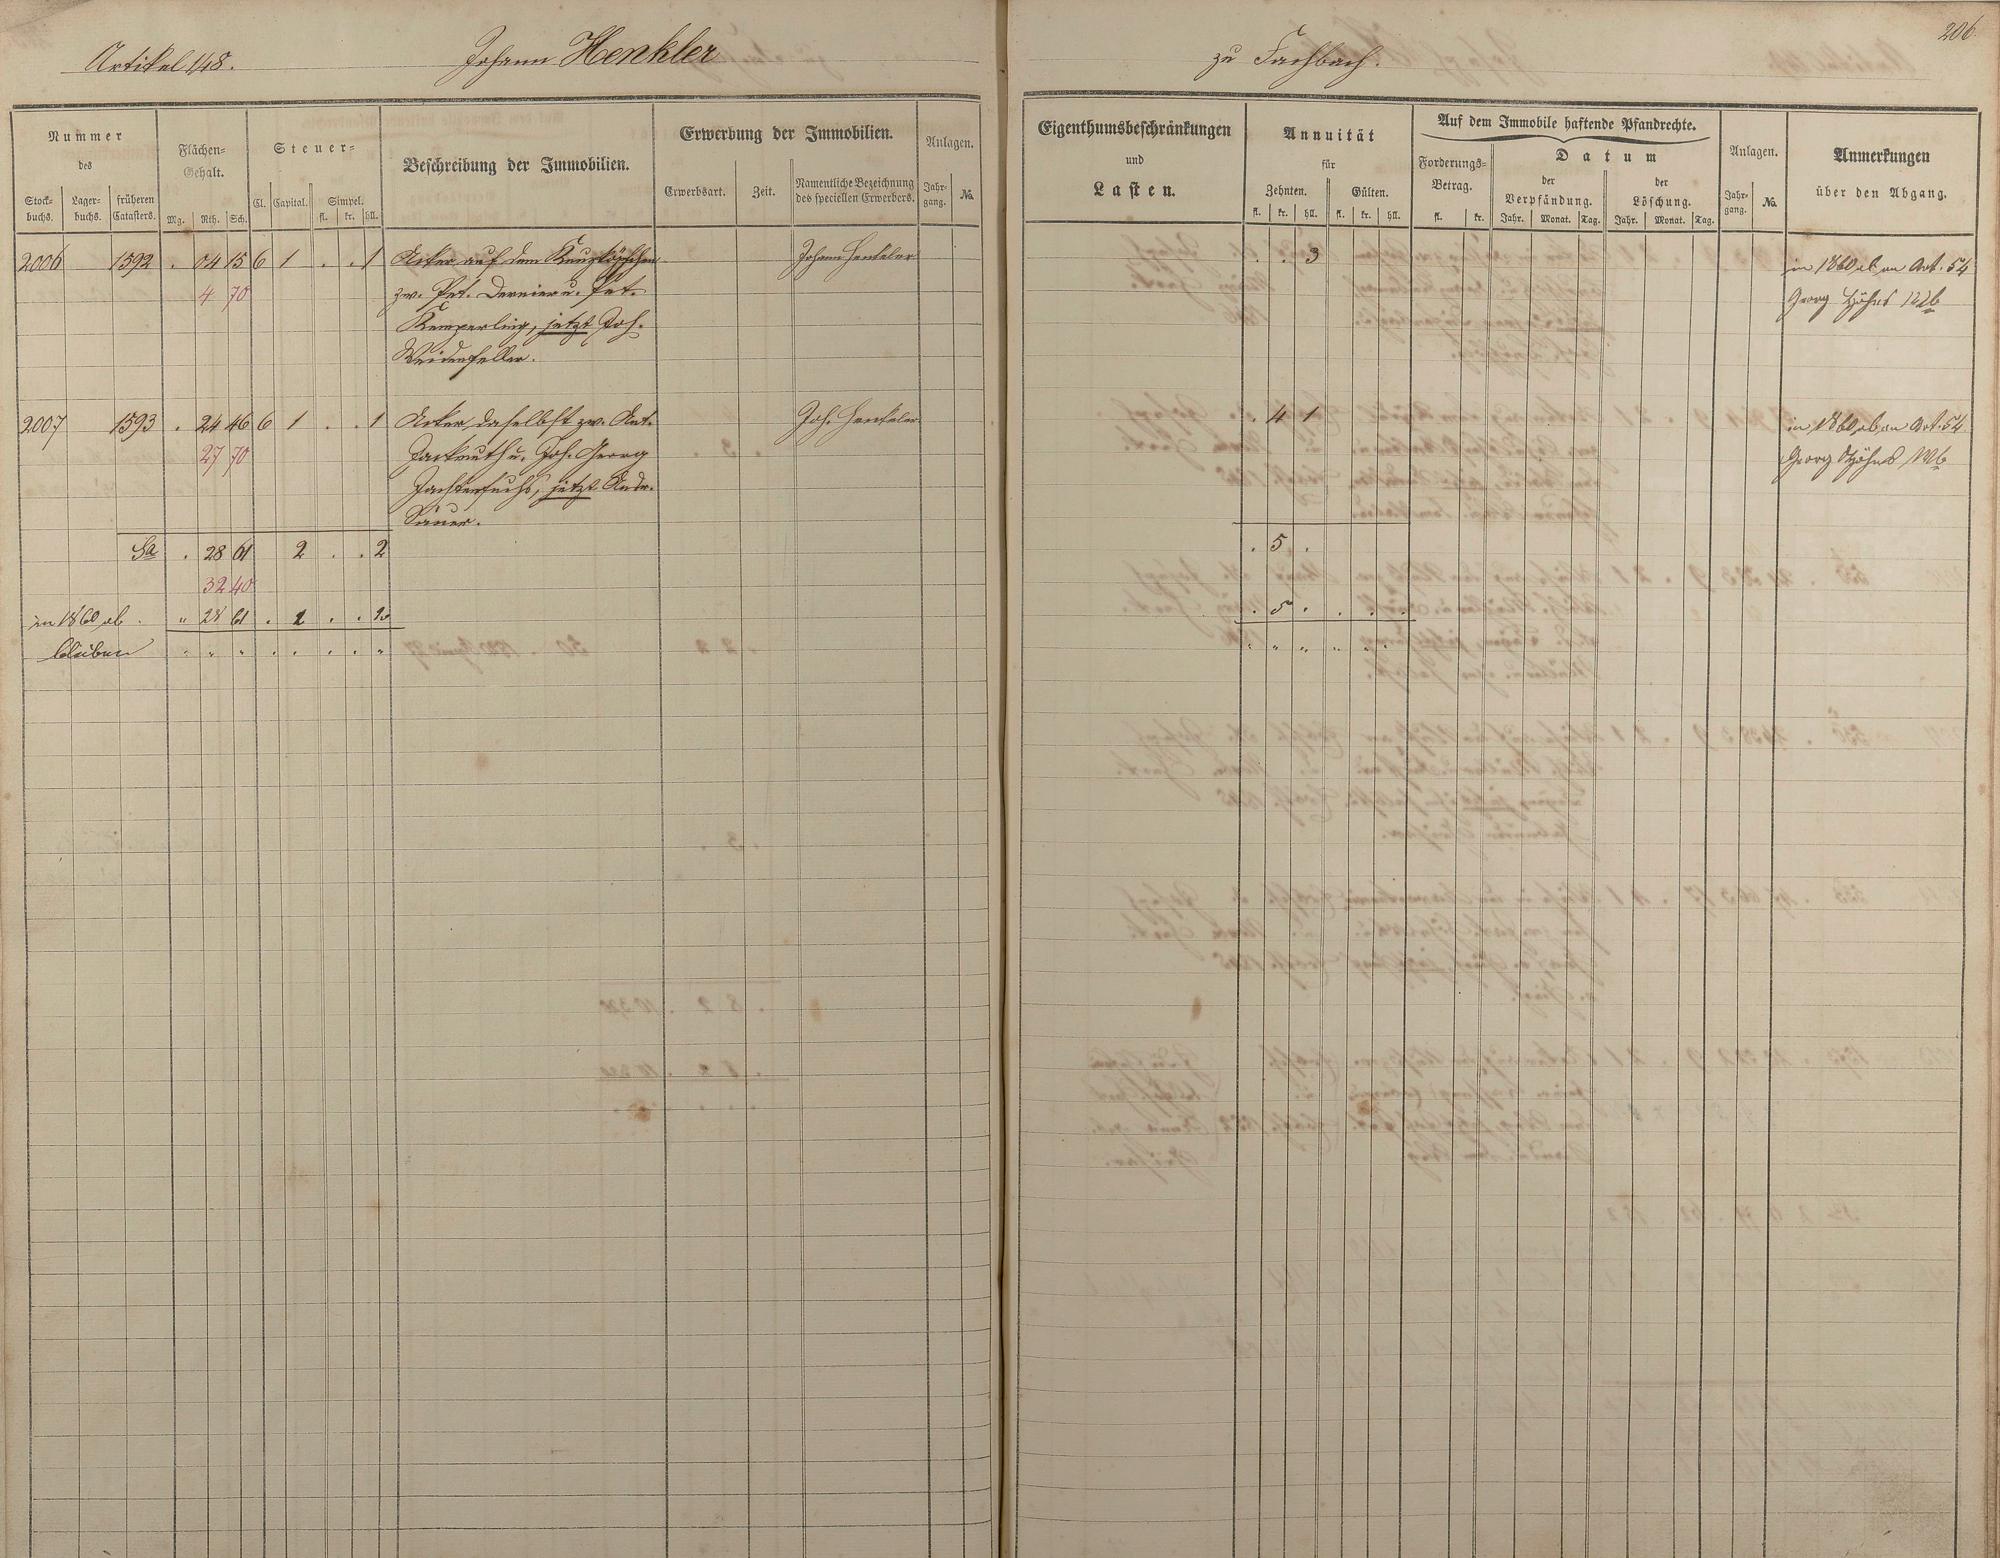 206
Artikel 148. Johann Henkler zu Fachbach.
Nummer
des
Stock-buchs. Lager-buchs. früheren Catasters.
Flächen-Gehalt.
Mg. Rth. Sch.
Steuer-
Cl. Capital. Simpel.
fl. kr. hll.
Beschreibung der Immobilien.
Erwerbung der Immobilien.
Erwerbsart. Zeit. Namentliche Bezeichnung des speciellen Erwerbers.
Anlagen.
Jahr-gang. No.
Eigenthumsbeschränkungen
und
Lasten.
Annuität
für
Zehnten. Gülten.
fl. kr. hll. fl. kr. hll.
Auf dem Immobile haftende Pfandrechte.
Forderungs-Betrag.
fl. kr.
Datum
der Verpfändung. der Löschung.
Jahr. Monat. Tag. Jahr. Monat. Tag.
Anlagen.
Jahr-gang. No.
Anmerkungen
über den Abgang.
2006 1592 . 04 15 6 1 . . 1 Acker auf dem Johann Henkeler . . 3 in 1860 ab an Art. 54
4 70 zw. Pet. u. Pet. Georg Höhns
Kemperling, jetzt Joh.
Weidenfeller.
2007 1593 . 24 46 6 1 . . 1 Acker daselbst zw. Ant. Joh. Henkeler . 4 1 in 1860 ab an Art. 54
27 70 u. Joh. Georg Georg Höhns
jetzt Andr.
Sauer.
Sa . 28 61 2 . . 2 . 5 .
32 40
in 1860 ab . " 28 61 . 2 . . 2 . 5 . . . .
bleiben " " " . . . . . " " " " . " "